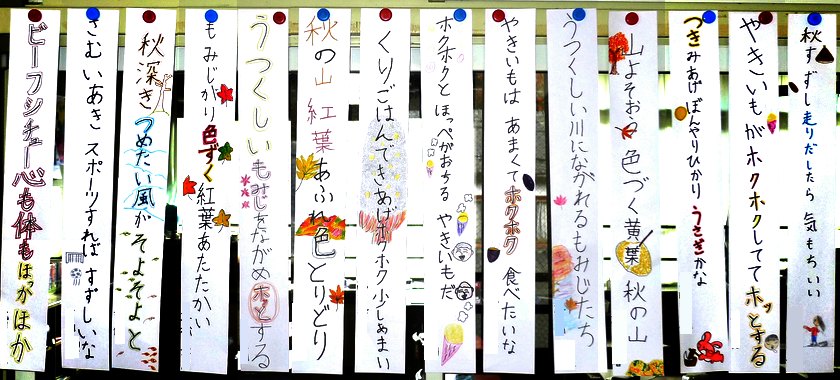 秋すずし走りだしたら気もちいい
やきいもがホクホクしててホッとする
つきみあげぼんやりひかりうさぎかな
山よそおう色づく黄葉秋の山
うつくしい川にながれるもみじたち
やきいもはあまくてホクホク食べたいな
ホクホクとほっぺがおちるやきいもだ
くりごはんてきあげホクホク少しあまい
秋の山紅葉あふれ色とりどり
うつくしいもみじをながめホッとする
もみじがり色ずく紅葉あたたかい
秋深きつめたい風がそよそよと
さむいあきスポーツすればすずしいな
ビーフシチュー心も体もほっかほか